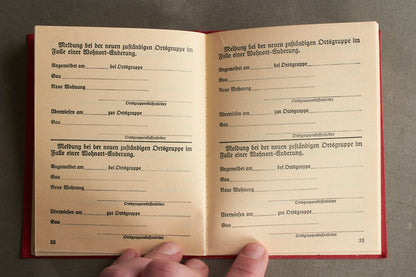 Meldung bei der neuen zuständigen Ortsgruppe im
Falle einer Wohnort-Änderung.
Angemeldet am bei Ortsgruppe
Gau
Neue Wohnung
Ortsgruppenkassenleiter
Überwiesen am zur Ortsgruppe
Gau
Ortsgruppenkassenleiter
Meldung bei der neuen zuständigen Ortsgruppe im
Falle einer Wohnort-Änderung.
Angemeldet am bei Ortsgruppe
Gau
Neue Wohnung
Ortsgruppenkassenleiter
Überwiesen am zur Ortsgruppe
Gau
Ortsgruppenkassenleiter
32
Meldung bei der neuen zuständigen Ortsgruppe im
Falle einer Wohnort-Änderung.
Angemeldet am bei Ortsgruppe
Gau
Neue Wohnung
Ortsgruppenkassenleiter
Überwiesen am zur Ortsgruppe
Gau
Ortsgruppenkassenleiter
Meldung bei der neuen zuständigen Ortsgruppe im
Falle einer Wohnort-Änderung.
Angemeldet am bei Ortsgruppe
Gau
Neue Wohnung
Ortsgruppenkassenleiter
Überwiesen am zur Ortsgruppe
Gau
Ortsgruppenkassenleiter
33